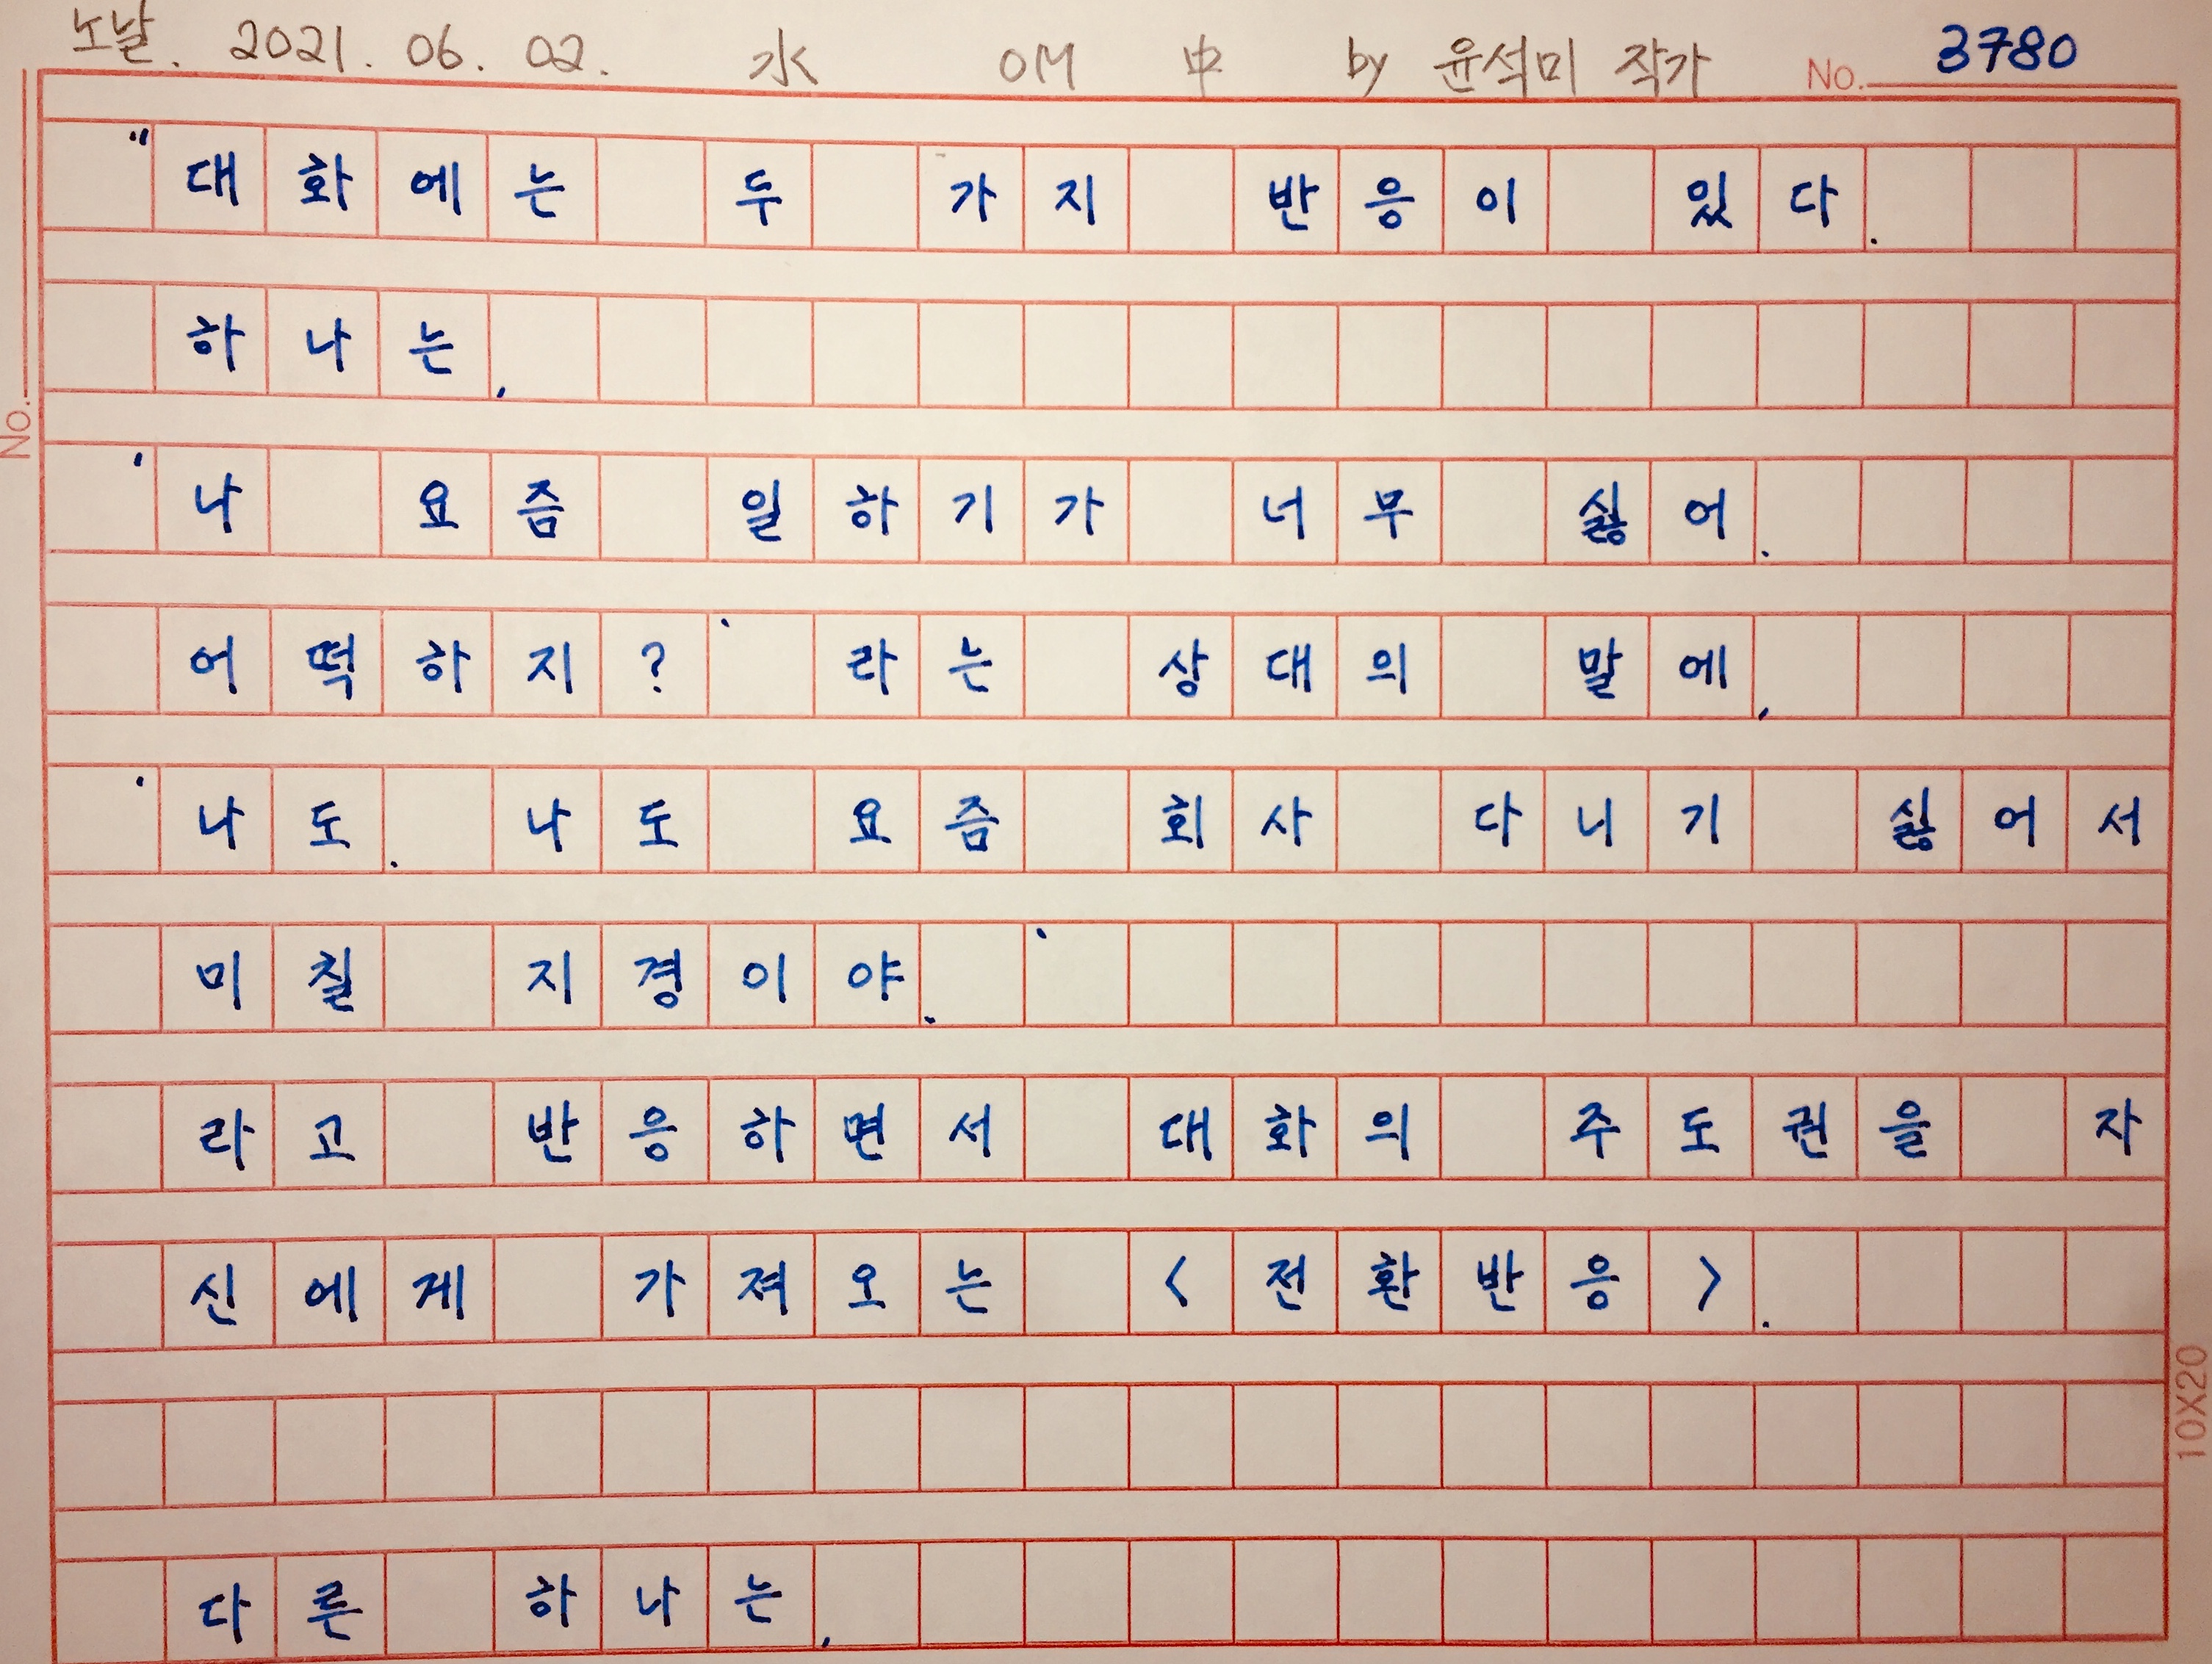 노날. 2021. 06. 02. 水 OM 中 by 윤석미 작가 No. 3780
"대화에는 두 가지 반응이 있다.
하나는,
'나 요즘 일하기가 너무 싫어.
어떡하지?' 라는 상대의 말에,
'나도. 나도 요즘 회사 다니기 싫어서
미칠 지경이야.'
라고 반응하면서 대화의 주도권을 자
신에게 가져오는 <전환반응>.
다른 하나는,
No.
10X20